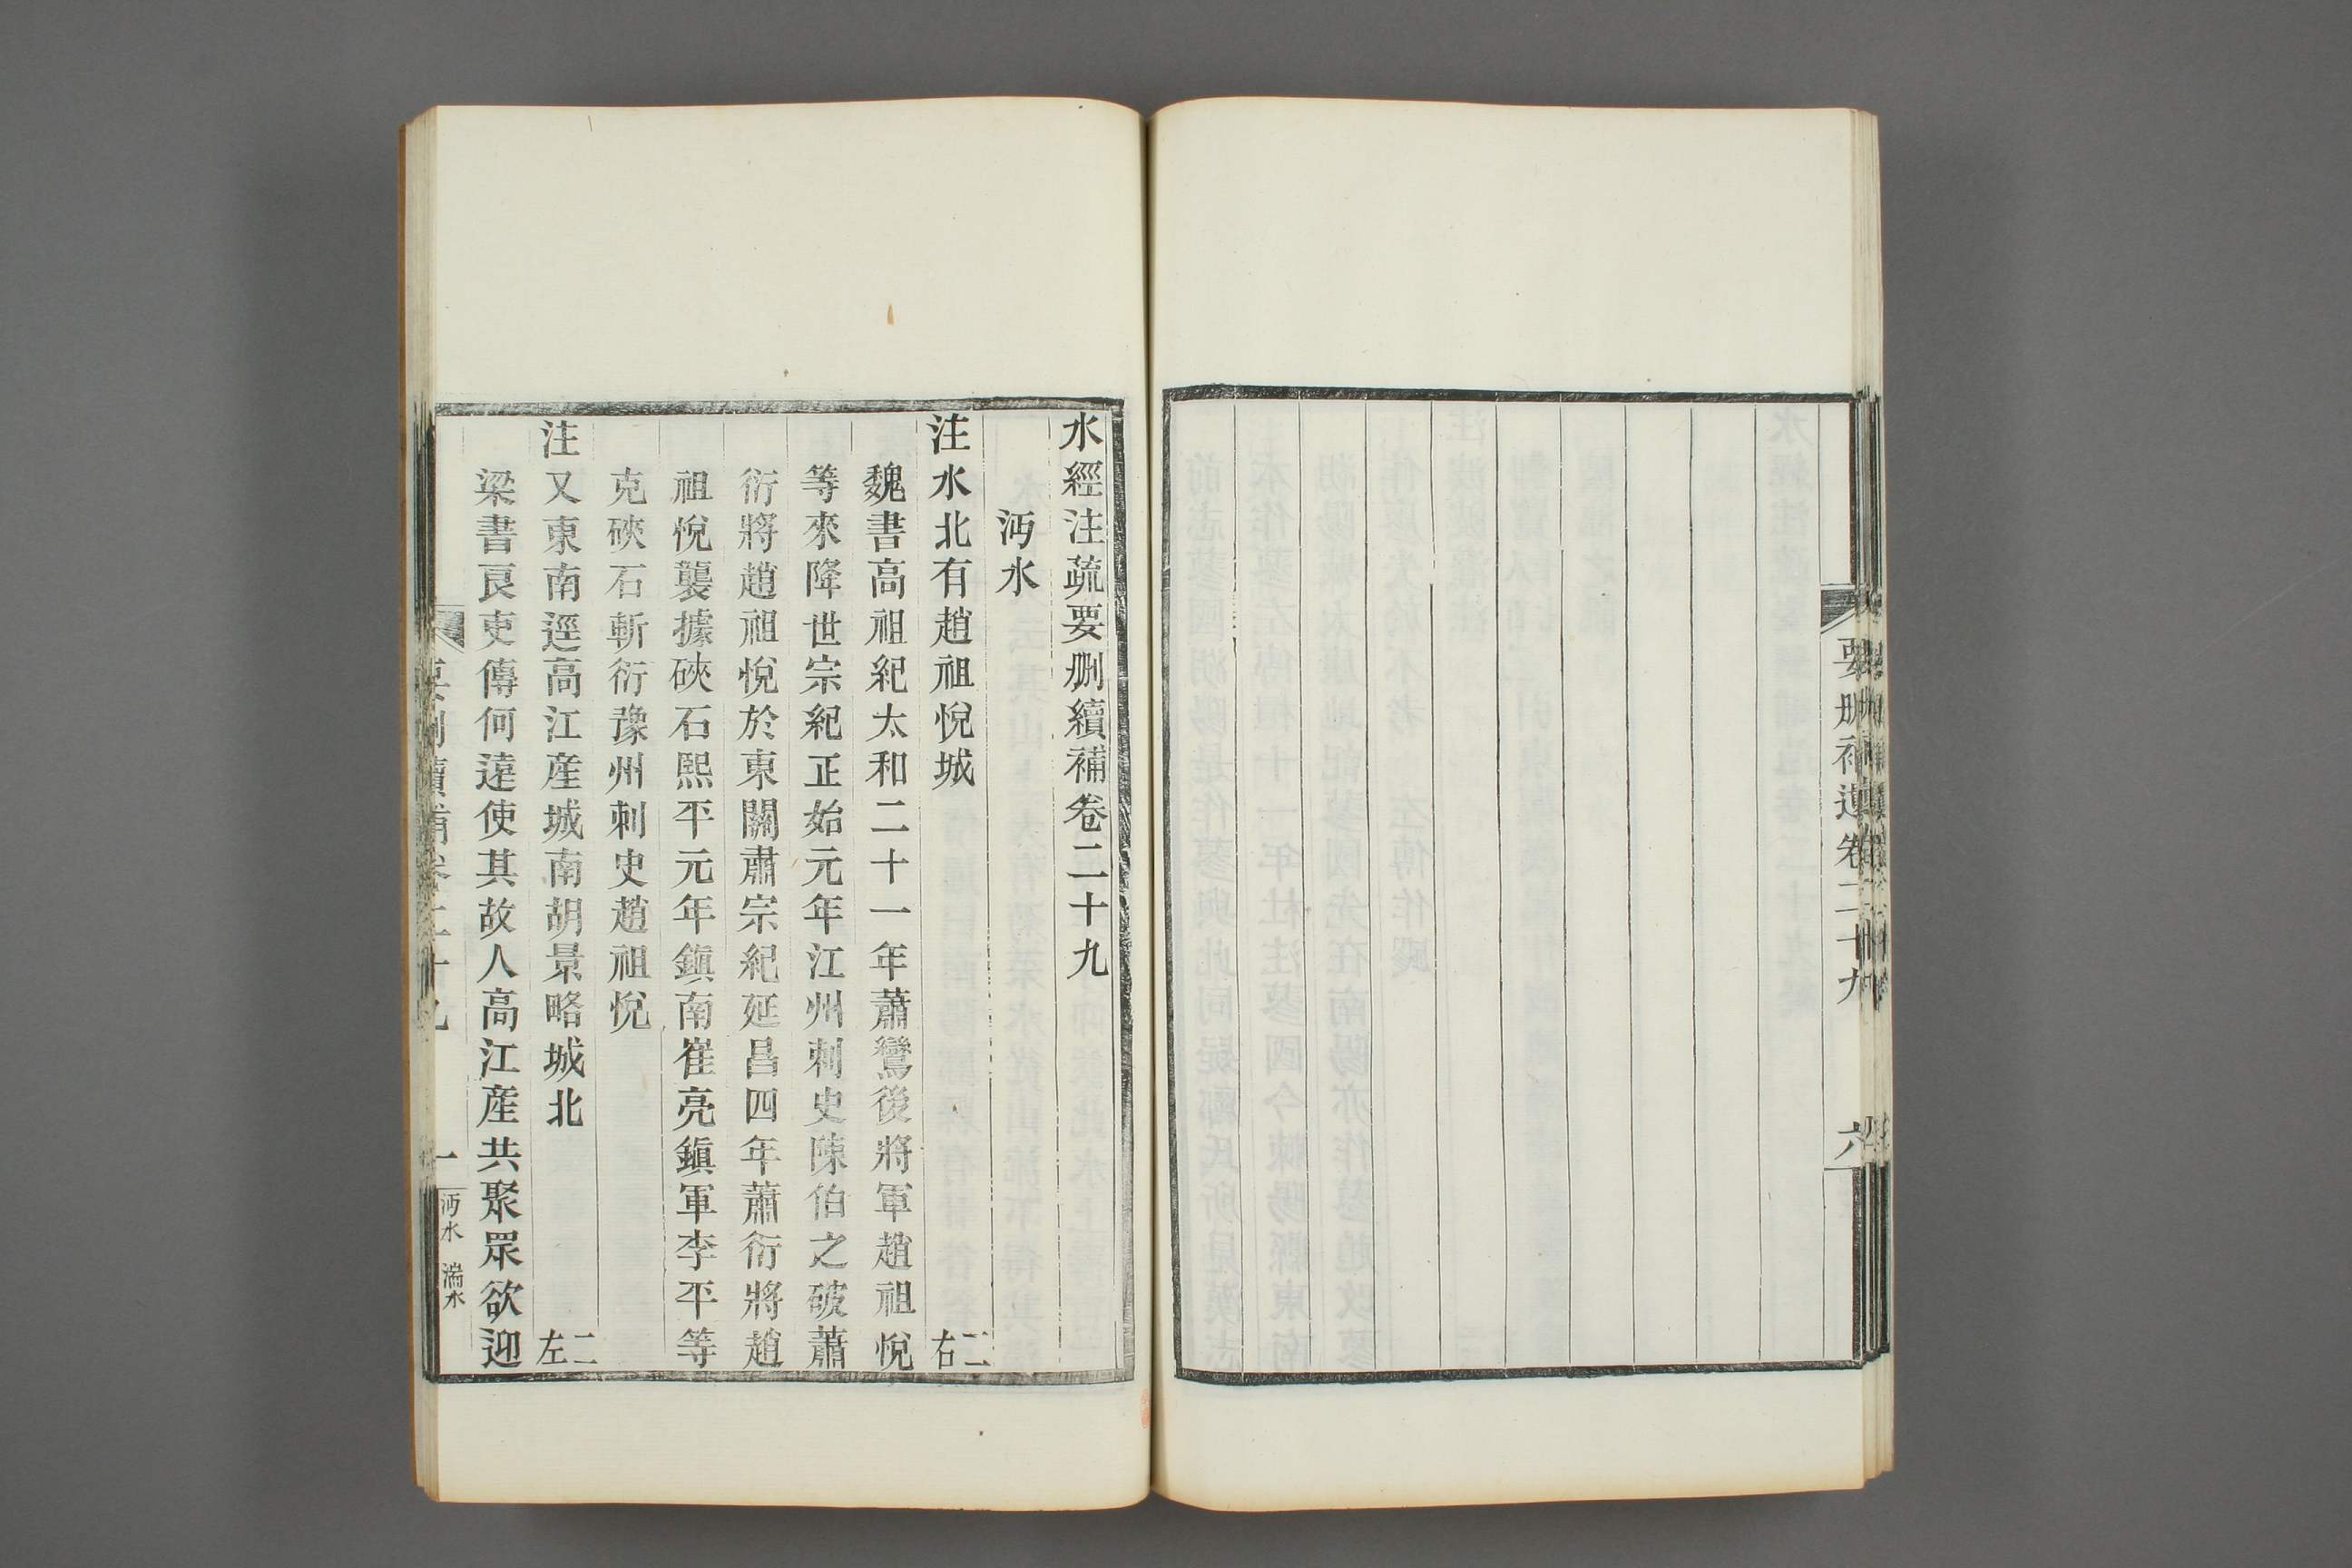 要刪補遺卷二十九
六
水經注疏要刪續補卷二十九
沔水
注水北有趙祖悅城
二右
魏書高祖紀太和二十一年蕭鸞後將軍趙祖悅
等來降世宗紀正始元年江州刺史陳伯之破蕭
衍將趙祖悅於東關肅宗紀延昌四年蕭衍將趙
祖悅襲據硤石熙平元年鎮南崔亮鎮軍李平等
克硤石斬衍豫州刺史趙祖悅
注又東南逕高江產城南胡景略城北
二左
梁書良吏傳何遠使其故人高江產共聚眾欲迎
要刪續補卷二十九
一
沔水 湍水